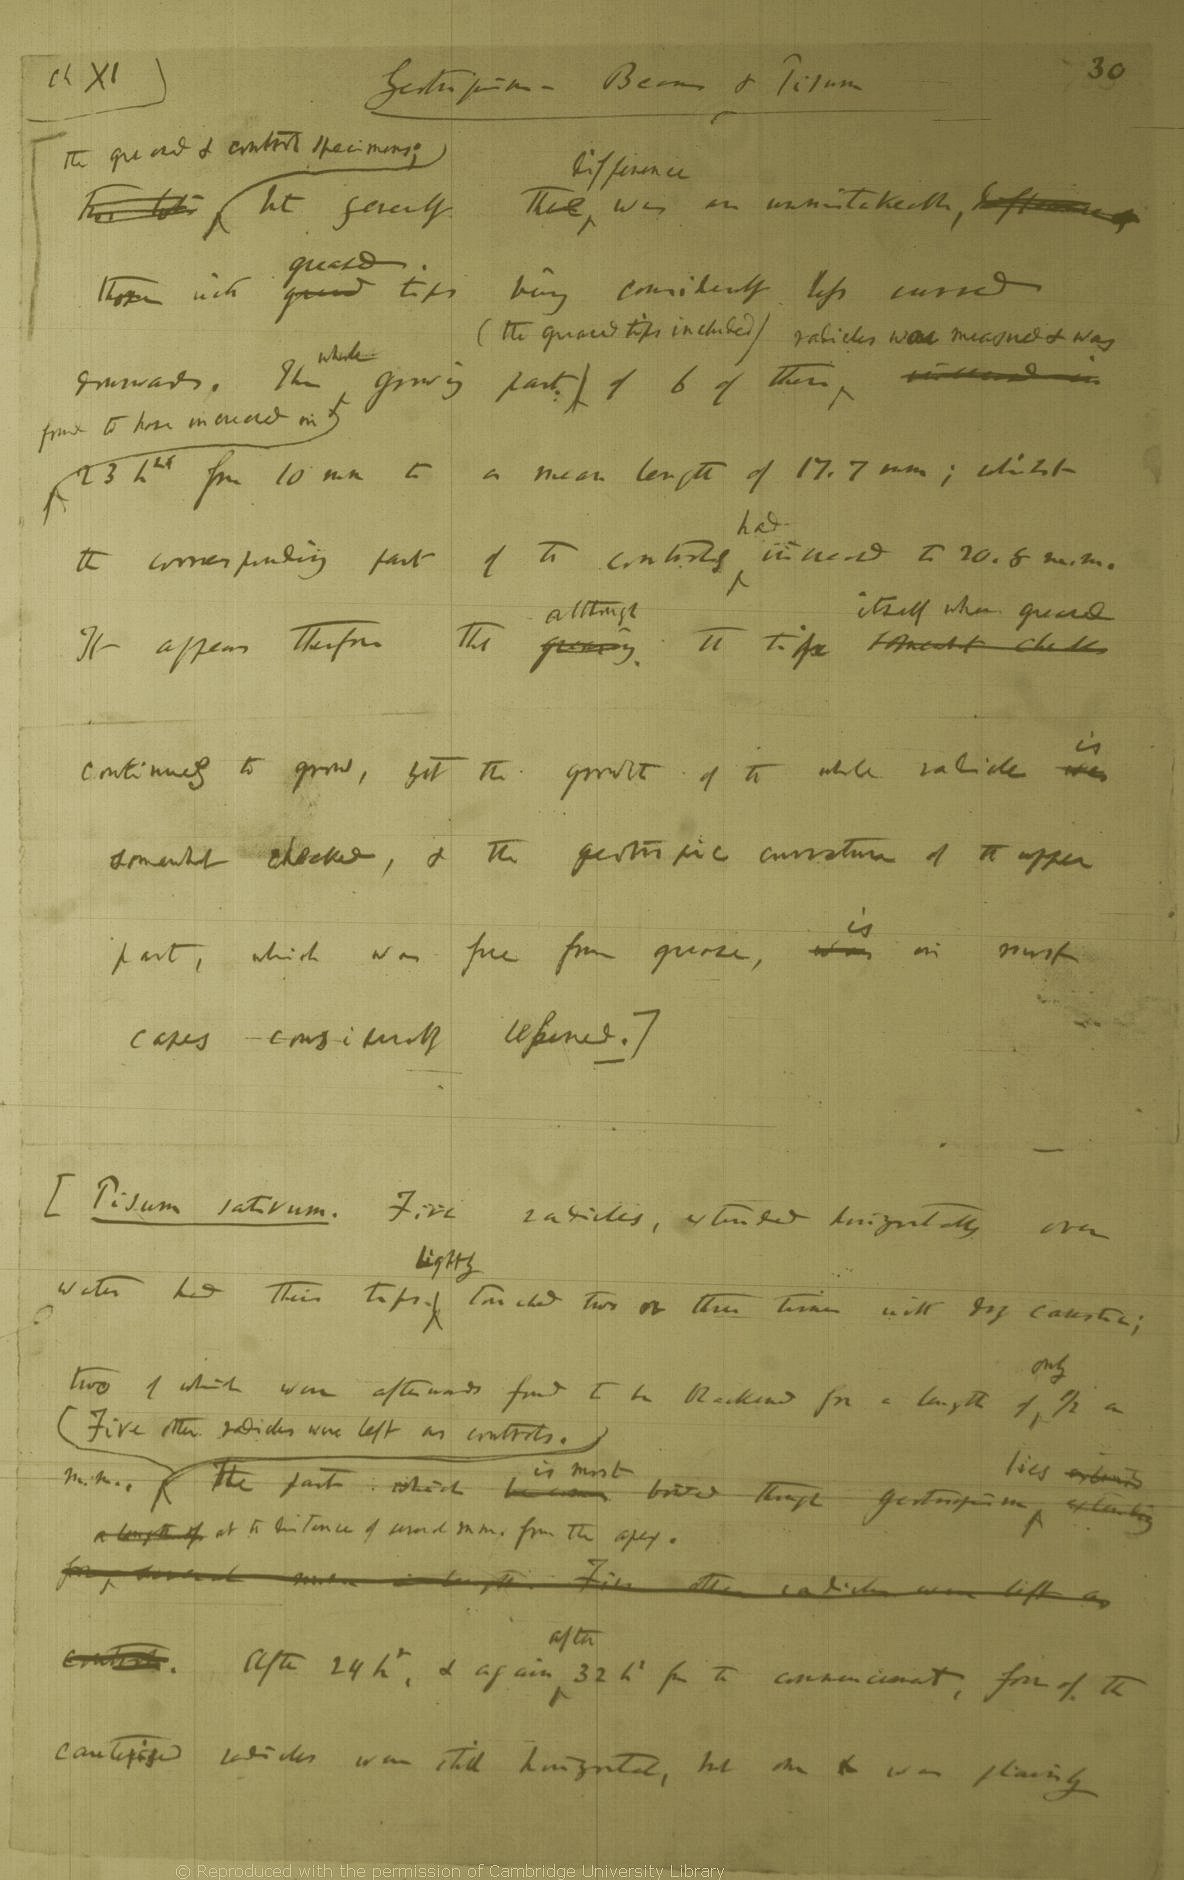 Ch XI
Geotropism - Beans & Pisum
30
the greased & control specimens;
difference
but generally there was an unmistakeable,
greased
those with greased tips being considerably less curved
(the greased tips included) radicles were measured & was
whole
downwards. The growing part of 6 of them
found to have increased in
23 hrs from 10 mm to a mean length of 17.7 mm; whilst
had
the corresponding part of the controls increased to 20.8 m.m.
although itself when greased
It appears therefore that greasing the tip somewhat checks
is
continues to grow, yet the growth of the whole radicle was
somewhat checked, & the geotropic curvature of the upper
is
part, which was free from grease, was in most
cases considerably lessened.]
[Pisum sativum. Five radicles, extended horizontally over
lightly
water had their tips touched two or three times with dry caustic;
only
two of which were afterwards found to be blackened for a length of 1/2 a
(Five other radicles were left as controls.)
is most lies
m.m.. The part which becomes bowed through geotropism, extending
a length of at the distance of several m.m. from the apex.
for, several m.m. in length. Five other radicles were left as
after
controls. After 24 hr, & again 32 hr from the commencement, four of the
cauterised radicles were still horizontal, but one was plainly
© Reproduced with the permission of Cambridge University Library